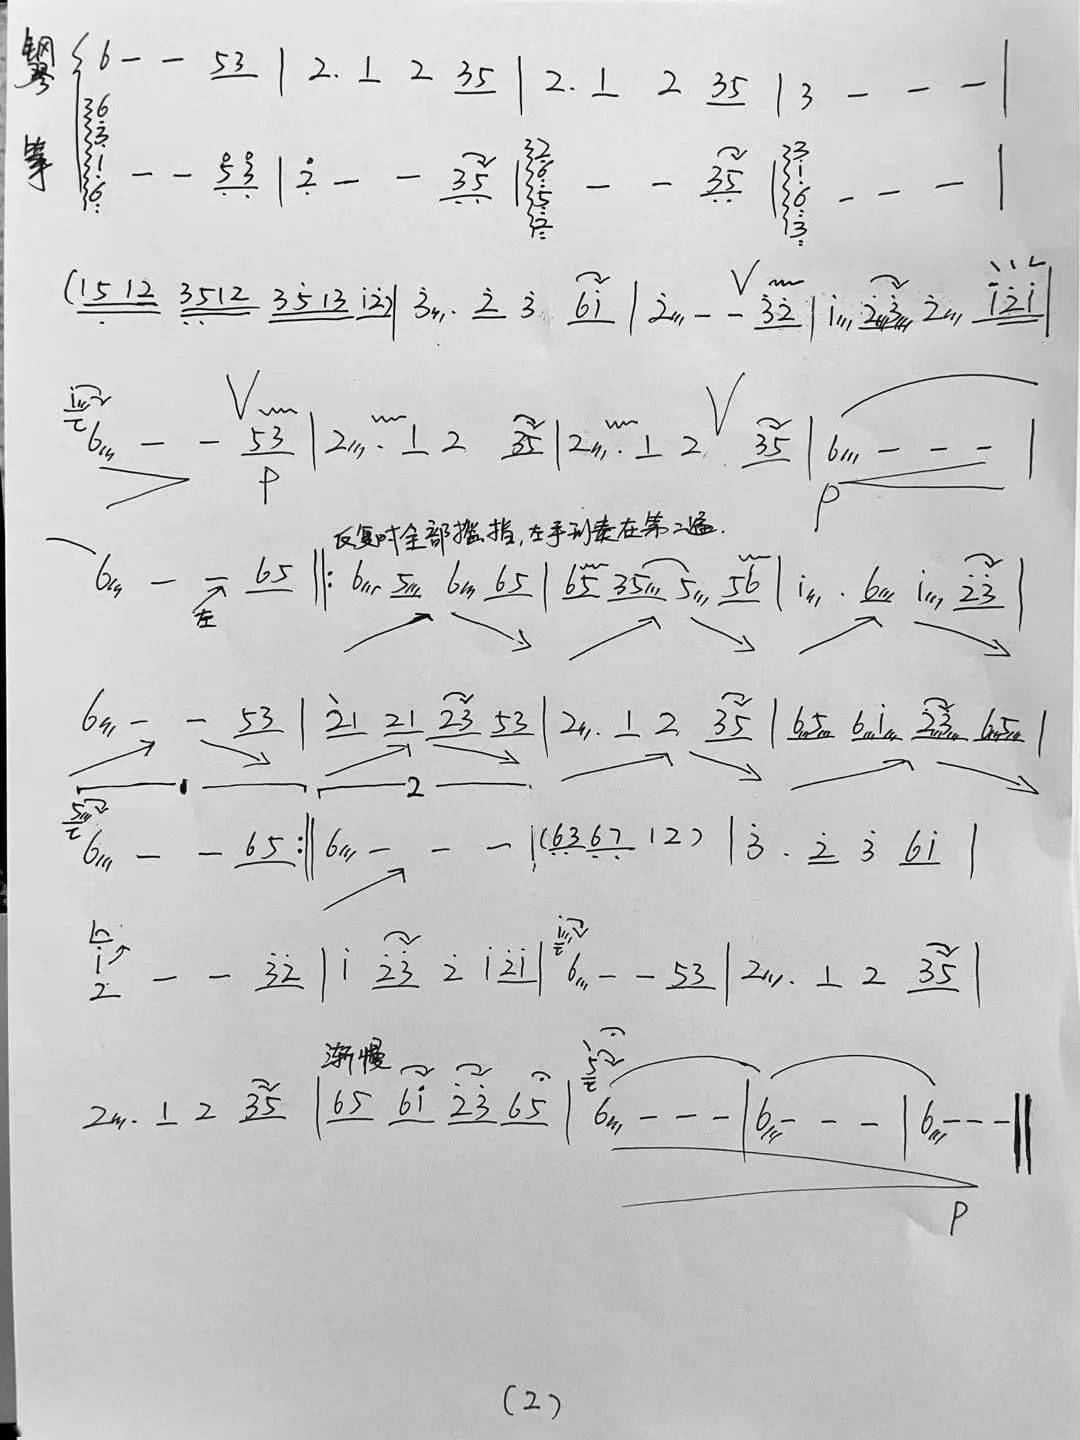 钢琴 6 - - 53 | 2. 1 2 35 | 2. 1 2 35 | 3 - - - |
筝 6 3 1 6 - - 53 | 2 - - 35 | 2 6 5 2 - - 35 | 3 1 6 3 - - - |
(1512 3512 3513 12) | 3. 2 3 61 | 2 - - 32 | 1 23 2 121 |
1 6 - - 53 | 2. 1 2 35 | 2. 1 2 35 | 6 - - - |
P P
反复时全部摇指,左手刮奏在第二遍.
6 - - 65 ||: 6 5 6 65 | 65 35 5 56 | 1. 6 1 23 |
左
6 - - 53 | 21 21 23 53 | 2. 1 2 35 | 65 61 23 65 |
1 2
5 6 - - 65 :|| 6 - - - | (63 67 12) | 3. 2 3 61 |
1 2 - - 32 | 1 23 2 121 | 1 6 - - 53 | 2. 1 2 35 |
渐慢
2. 1 2 35 | 65 61 23 65 | 5 6 - - - | 6 - - - | 6 - - - ||
P
(2)